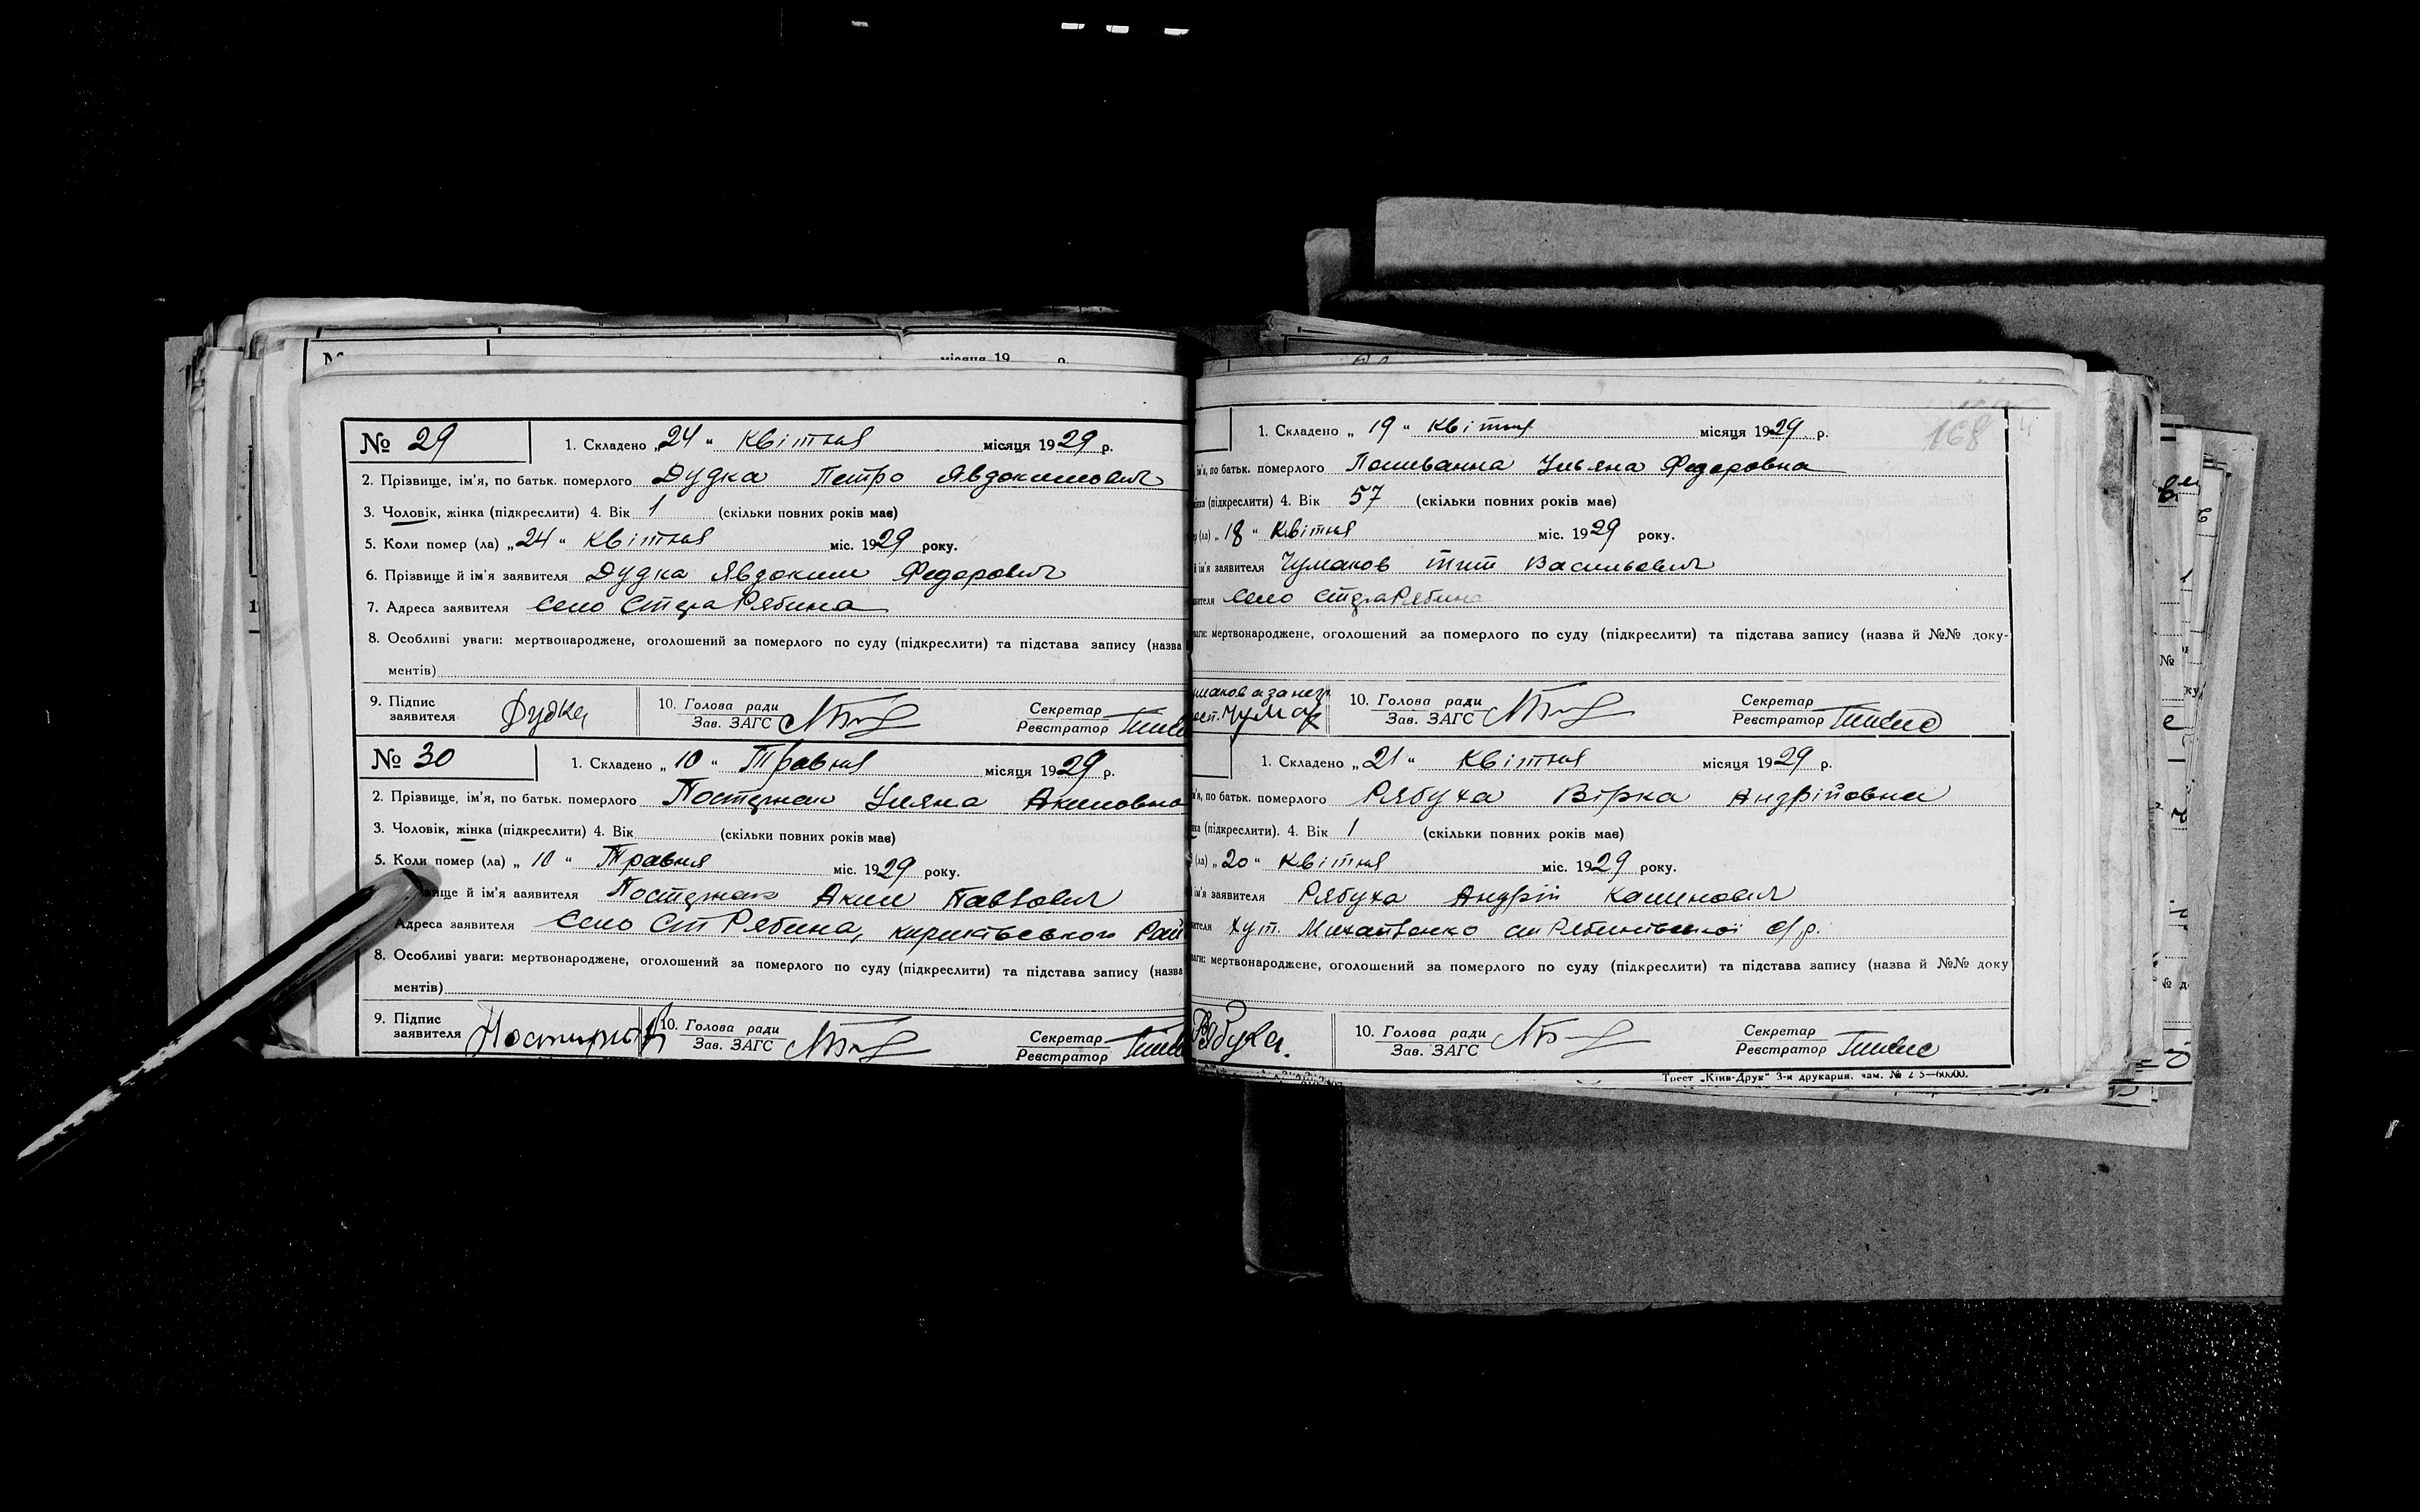 місяця 19 р.
№ 29
1. Складено „24" Квітня місяця 1929 р.
2. Прізвище, ім'я, по батьк. померлого Дудка Петро Явдокимович
3. Чоловік, жінка (підкреслити) 4. Вік 1 (скільки повних років має)
5. Коли помер (ла) „24" Квітня міс. 1929 року.
6. Прізвище й ім'я заявителя Дудка Явдоким Федорович
7. Адреса заявителя Село Стара Рябина
8. Особливі уваги: мертвонароджене, оголошений за померлого по суду (підкреслити) та підстава запису (назва
ментів)
9. Підпис заявителя Дудка
10. Голова ради
Зав. ЗАГС
Секретар
Реєстратор
№ 30
1. Складено „10" Травня місяця 1929 р.
2. Прізвище, ім'я, по батьк. померлого Уляна Акимовна
3. Чоловік, жінка (підкреслити) 4. Вік (скільки повних років має)
5. Коли помер (ла) „10" Травня міс. 1929 року.
вище й ім'я заявителя Аким Павлович
Адреса заявителя Село Ст Рябина, Рай
8. Особливі уваги: мертвонароджене, оголошений за померлого по суду (підкреслити) та підстава запису (назва
ментів)
9. Підпис заявителя
10. Голова ради
Зав. ЗАГС
Секретар
Реєстратор
168
1. Складено „19" Квітня місяця 1929 р.
ім'я, по батьк. померлого Поливанна Ульяна Федоровна
(підкреслити) 4. Вік 57 (скільки повних років має)
(ла) „18" Квітня міс. 1929 року.
й ім'я заявителя Чумаков Тит Васильович
Село Стара Рябина
мертвонароджене, оголошений за померлого по суду (підкреслити) та підстава запису (назва й №№ доку-
10. Голова ради
Зав. ЗАГС
Секретар
Реєстратор
1. Складено „21" Квітня місяця 1929 р.
по батьк. померлого Рябуха Вірка Андрійовна
(підкреслити). 4. Вік 1 (скільки повних років має)
(ла) „20" Квітня міс. 1929 року.
ім'я заявителя Рябуха Андрій
хут. Михайленко с/р.
мертвонароджене, оголошений за померлого по суду (підкреслити) та підстава запису (назва й №№ доку
Рябуха.
10. Голова ради
Зав. ЗАГС
Секретар
Реєстратор
Трест „Київ-Друк" 3-я друкарня.